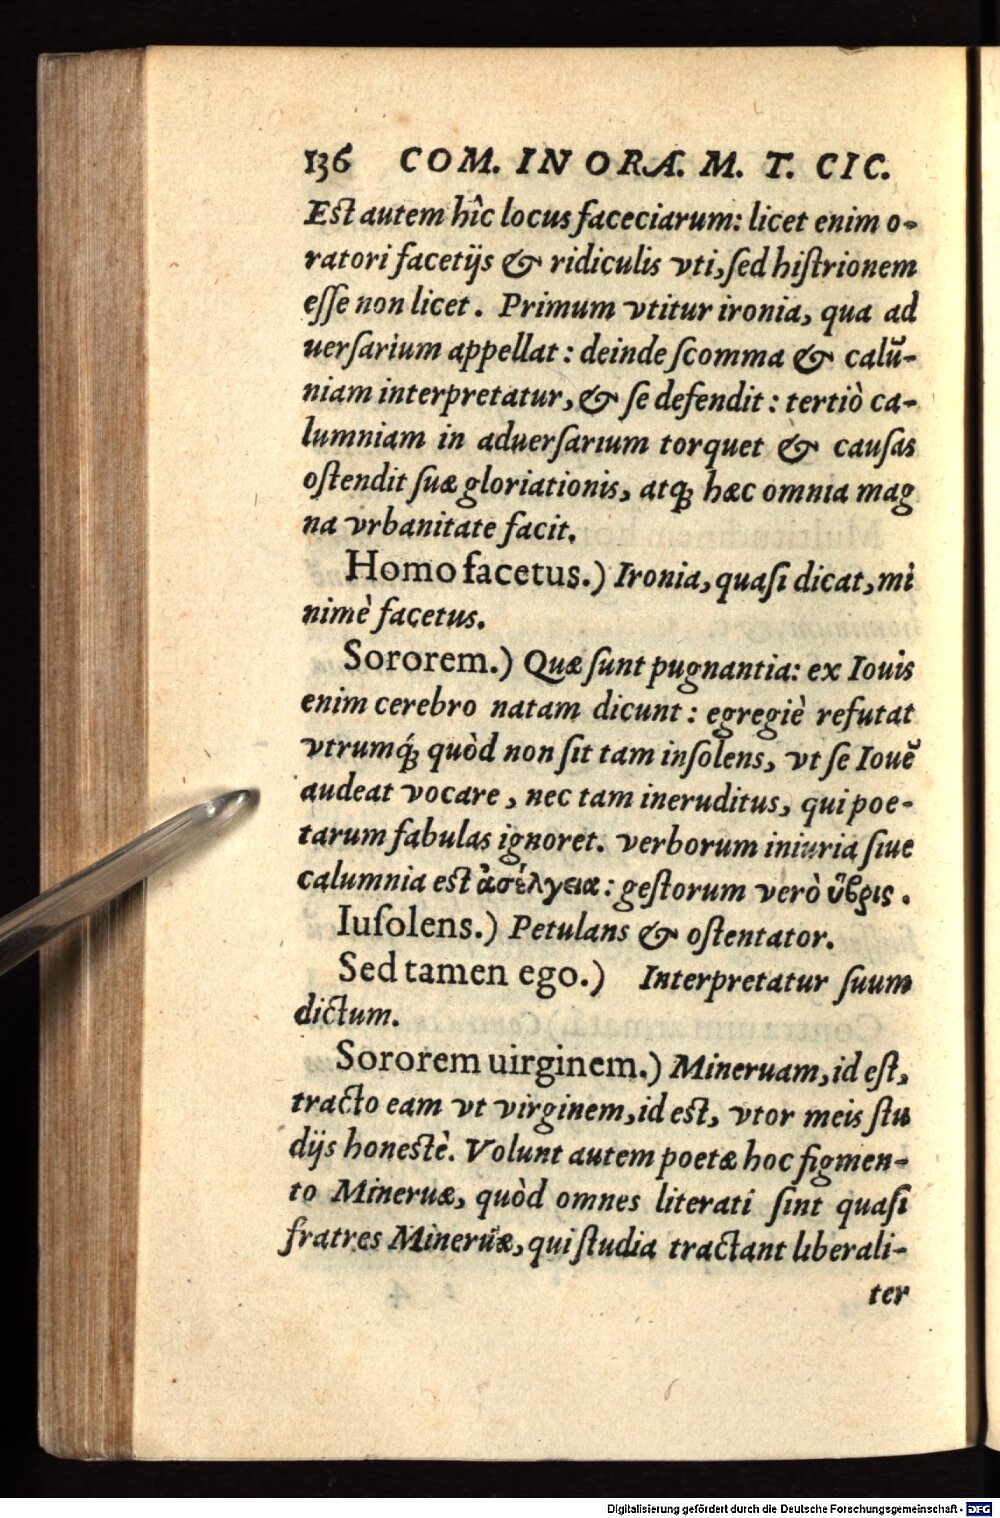 136 COM. IN ORA. M. T. CIC.
Est autem hîc locus faceciarum: licet enim o-
ratori facetijs & ridiculis vti, sed histrionem
esse non licet. Primum vtitur ironia, qua ad
uersarium appellat: deinde scomma & calũ-
niam interpretatur, & se defendit: tertiò ca-
lumniam in aduersarium torquet & causas
ostendit suæ gloriationis, atq; hæc omnia mag
na vrbanitate facit.
Homo facetus.) Ironia, quasi dicat, mi
nimè facetus.
Sororem.) Quæ sunt pugnantia: ex Iouis
enim cerebro natam dicunt: egregiè refutat
vtrumq́; quòd non sit tam insolens, vt se Iouẽ
audeat vocare, nec tam ineruditus, qui poe-
tarum fabulas ignoret. verborum iniuria siue
calumnia est ἀσέλγεια: gestorum verò ὕβρις.
Iusolens.) Petulans & ostentator.
Sed tamen ego.) Interpretatur suum
dictum.
Sororem uirginem.) Mineruam, id est,
tracto eam vt virginem, id est, vtor meis stu
dijs honestè. Volunt autem poetæ hoc figmen-
to Mineruæ, quòd omnes literati sint quasi
fratres Mineruæ, qui studia tractant liberali-
ter
Digitalisierung gefördert durch die Deutsche Forschungsgemeinschaft - DFG